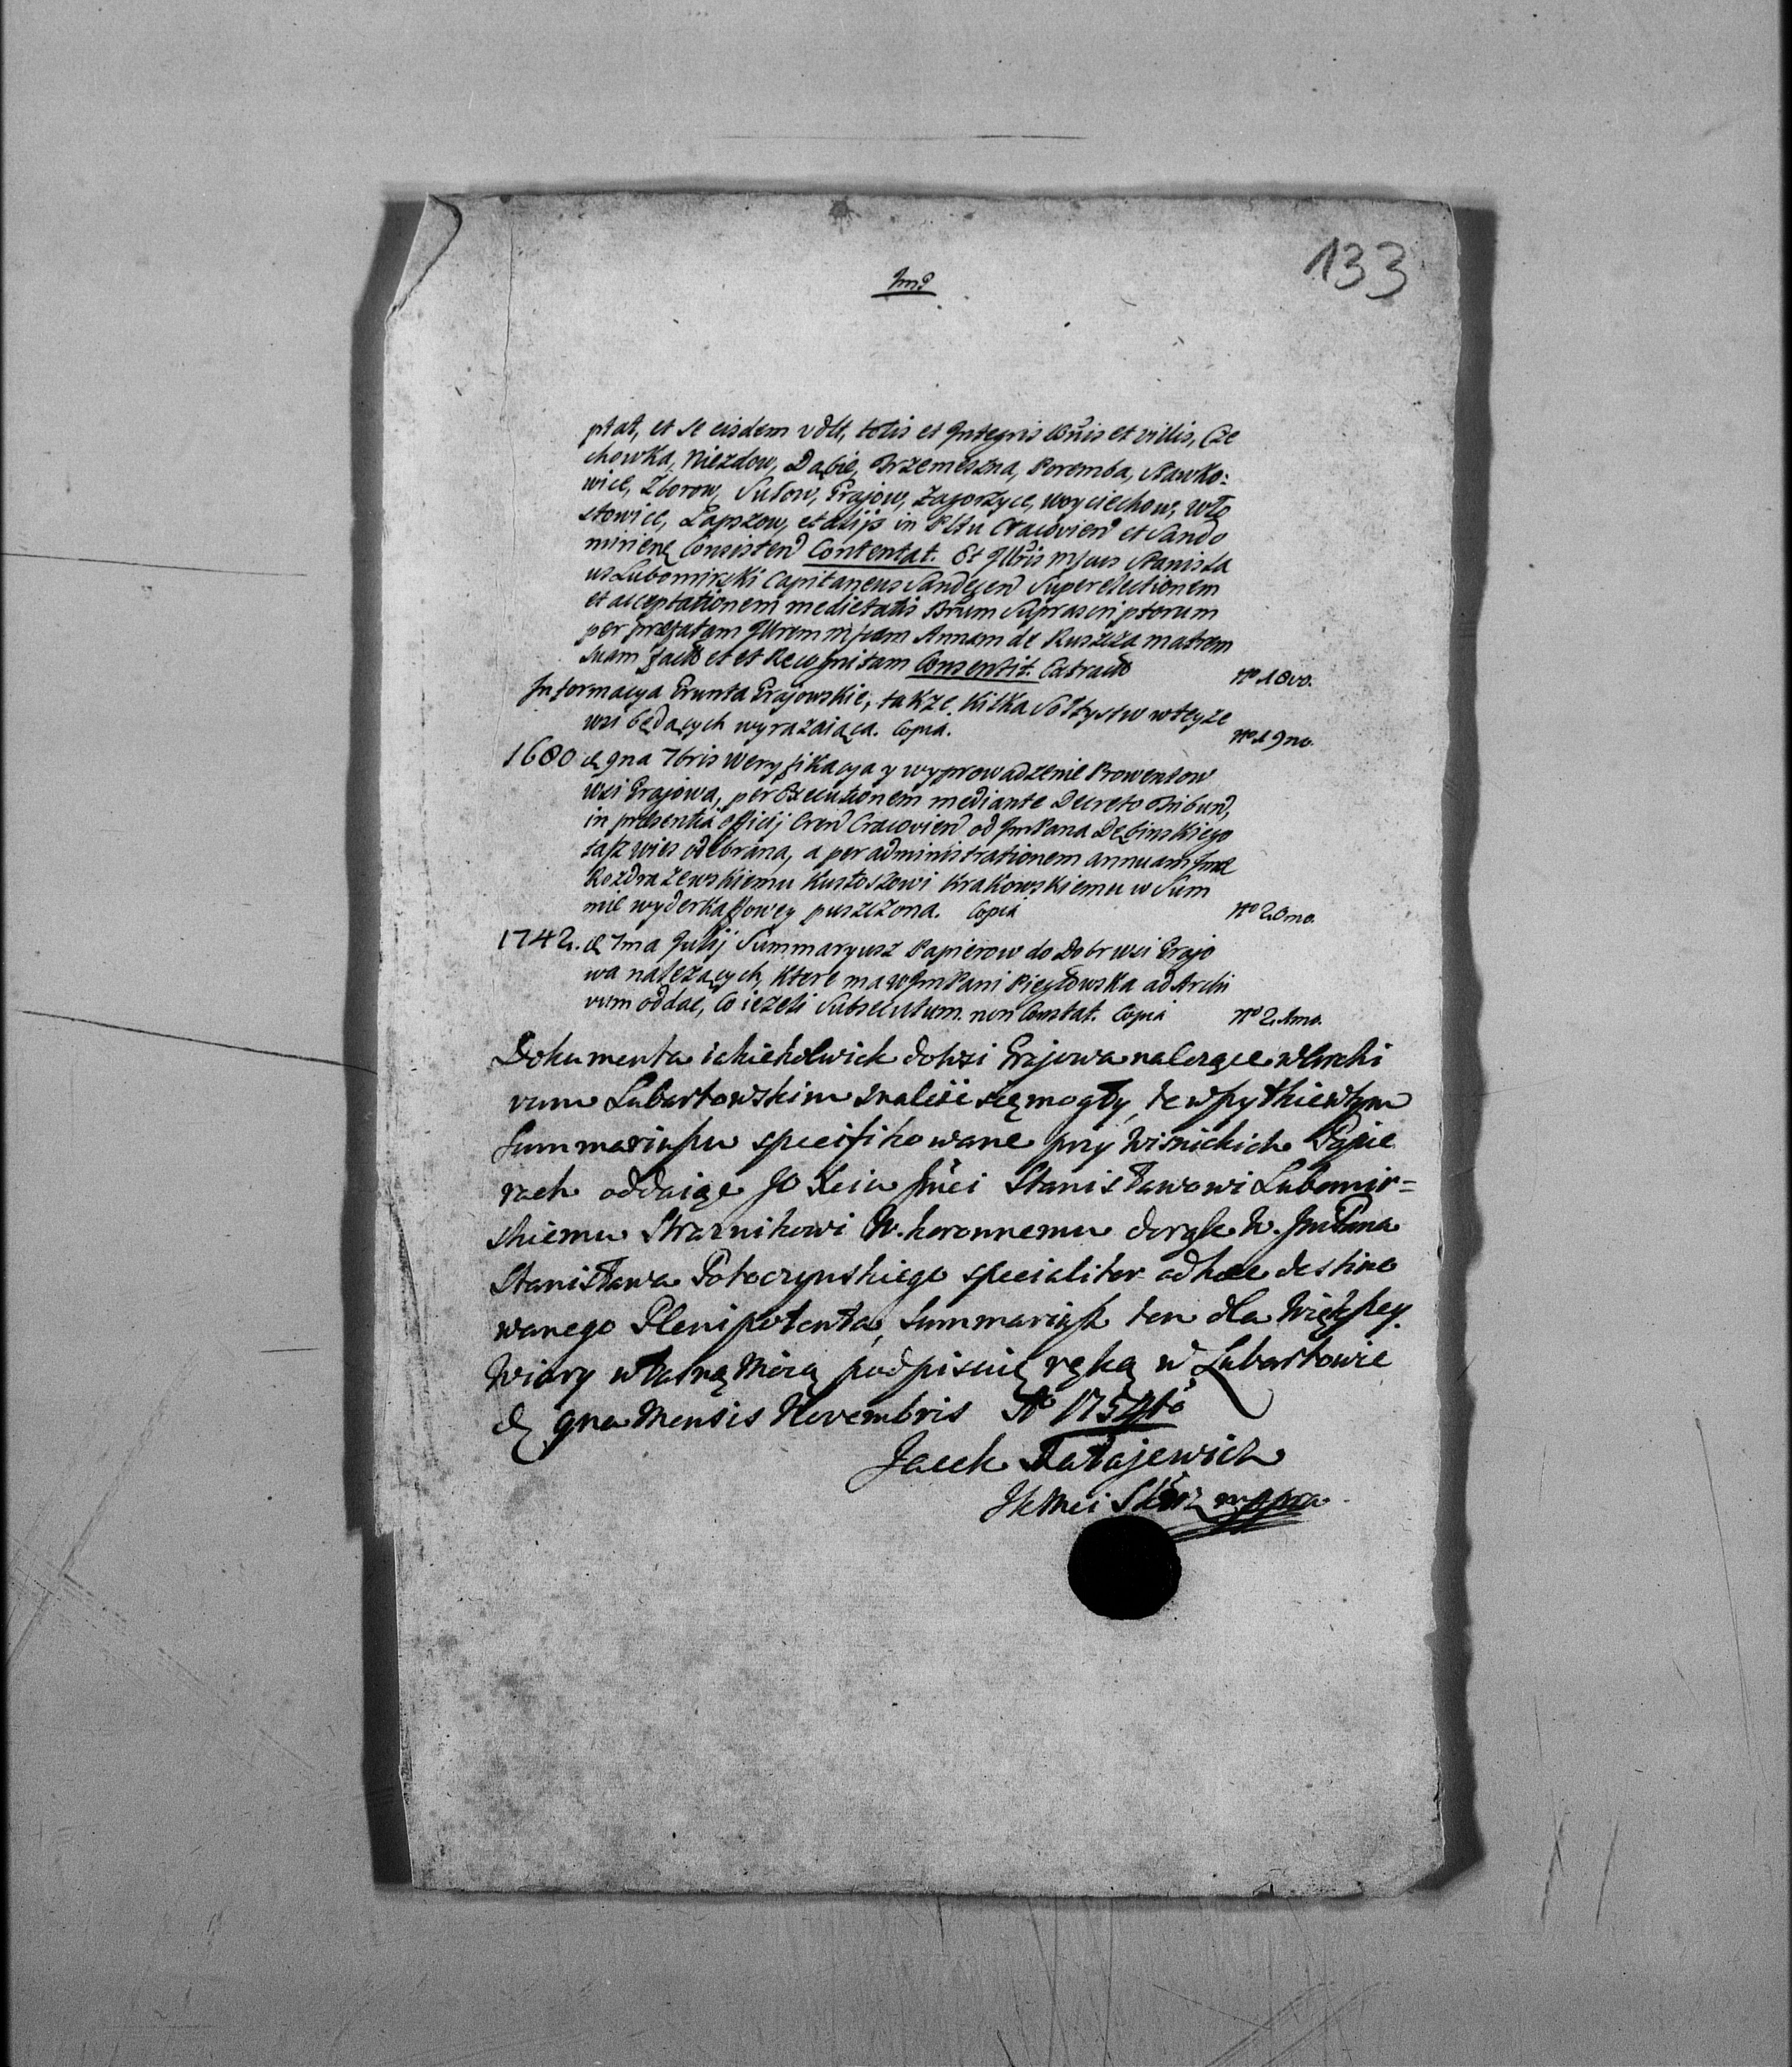 133
ptat, et se eisdem vdlt, totis et Integris Bonis et villis, Cze
chowka, Niezdow, Dąbie, Brzemeszna, Poremba, Stawko:
wice, Zborow, Sułow, Grajow, Zagorzyce, Woyciechow, Wło
stowice, Łapszow, et alijs in Pltu Cracovien et Sando
mirien Consisten Contentat. Et Illris Mfcus Stanisła
us Lubomirski Capitaneus Sandecen Super electionem
et acceptationem medietatis Bnum Suprascriptorum
per præfatam Illrem Mfcam Annam de Ruszcza matrem
suam facto et et Recognitam Consentit. Extract
No 18vo.
Informacya Grunta Grajowskie, także kilka Sołtystw w teyże
wsi będących wyrażaiąca. Copia.
No 19no.
1680 d 9na 7bris Weryfikacya y wyprowadzenie Prowentow
wsi Grajowa, per Executionem mediante Decreto Tribun,
in præsentia officij Cren Cracovien od Jm Pana Dębinskiego
taż wies odebrana, a per administrationem annuam Jmx
Rozdrażewskiemu Kustoszowi Krakowskiemu w Sum
mie wyderkaffowey puszczona. Copia
No 20mo.
1742. d 7ma Julij Summaryusz Papierow do Dobr wsi Grajo
wa należących, ktore ma w Jm Pani Pięgłowska ad Archi
vum oddac, Co ieżeli Subsecutum. non Constat. Copia
No 21mo.
Dokumenta iakiekolwiek do wsi Grajowa nalezące w Archi
vum Lubartowskim znaleść się mogły, te wszytkie w tym
Summariuszu specifikowane przy Wisnickich Papie
rach oddaię JO Xciu Jmci Stanisławowi Lubomir=
skiemu Straznikowi W. koronnemu do rąk W. Jm Pana
Stanisława Potoczynskiego specialiter ad hoc destino
wanego Plenipotenta, Summariusz ten dla Większey
Wiary własną Moią podpisuię ręką w Lubartowie
d 9na Mensis Novembris Ao 1754to
Jacek Tatajewicz